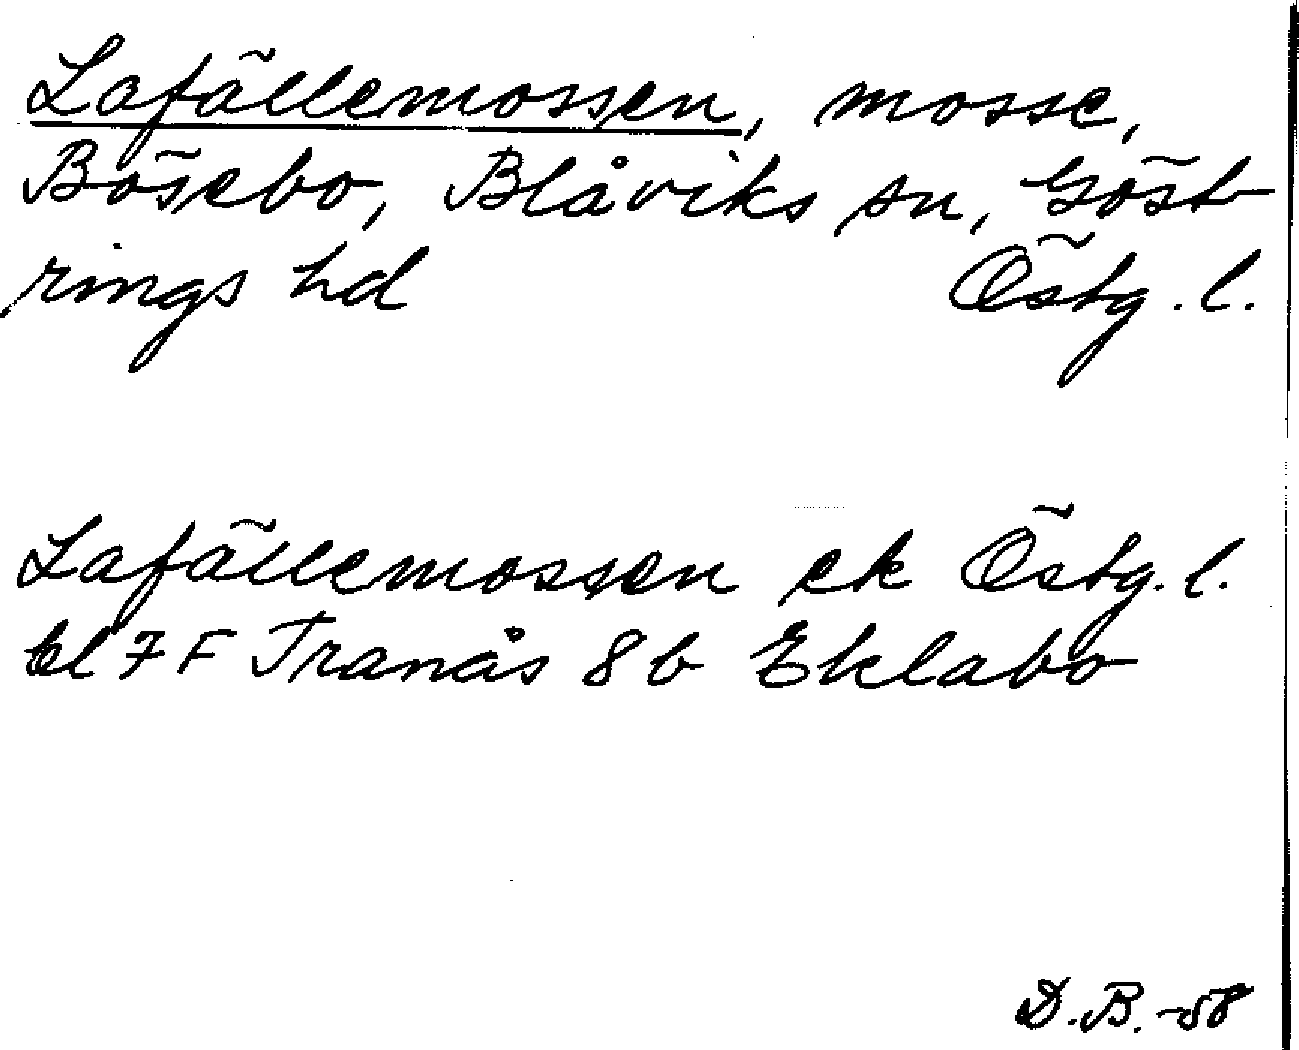 Lafällemossen, mosse,
Bösebo, Blåviks sn, Göst
rings hd Östg. l.
Lafällemossen ek Östg. l.
bl 7 F Tranås 8 b Eklabo
D.B. -58